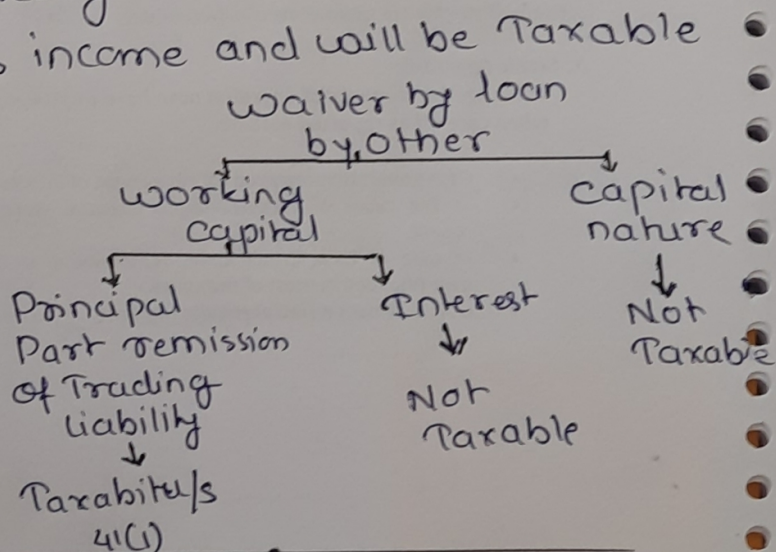 income and will be Taxable
waiver by loan
by, Other
working
capital
capital
nature
Principal
Part remission
of Trading
liability
Interest
Not
Taxable
Not
Taxable
Taxabite u/s
41(1)